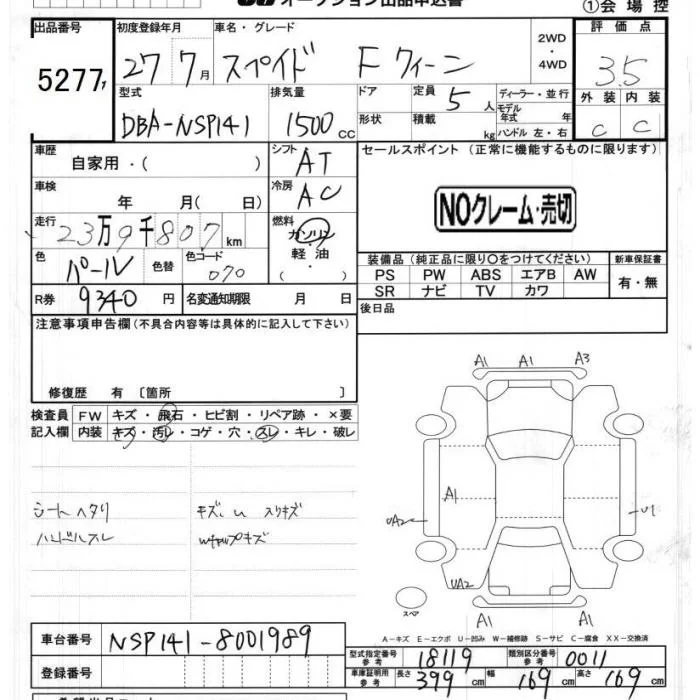 オークション出品申込書
①会場控
出品番号 初度登録年月 車名・グレード 2WD・4WD 評価点
5277 27 7月 スペイド Fクィーン 3.5
型式 排気量 ドア 定員 5人 ディーラー・並行 外装 内装
DBA-NSP141 1500cc 形状 積載 kg モデル年式 年 ハンドル 左・右 C C
車歴 自家用・( ) シフト AT セールスポイント (正常に機能するものに限ります)
車検 年 月( 日) 冷房 AC
NOクレーム・売切
走行 23万9千807km 燃料 ガソリン・軽油・( )
色 パール 色替 色コード 070
装備品(純正品に限り○をつけてください) 新車保証書
PS PW ABS エアB AW 有・無
SR ナビ TV カワ
R券 9340円 名変通知期限 月 日
後日品
注意事項申告欄(不具合内容等は具体的に記入して下さい)
修復歴 有 〔箇所 〕
検査員記入欄 FW キズ・飛石・ヒビ割・リペア跡・×要
内装 キズ・汚レ・コゲ・穴・スレ・キレ・破レ
シートヘタリ
ハンドルスレ
キズ、U 入りキズ
Wキャップキズ
A1 A1 A3
A1
UA2 U1
UA2
A1 A1
スペア
A-キズ E-エクボ U-凹み W-補修跡 S-サビ C-腐食 XX-交換済
車台番号 NSP141-8001989
登録番号
型式指定番号 参考 18119 類別区分番号 参考 0011
車庫証明用 参考 長さ 399cm 幅 169cm 高さ 169cm